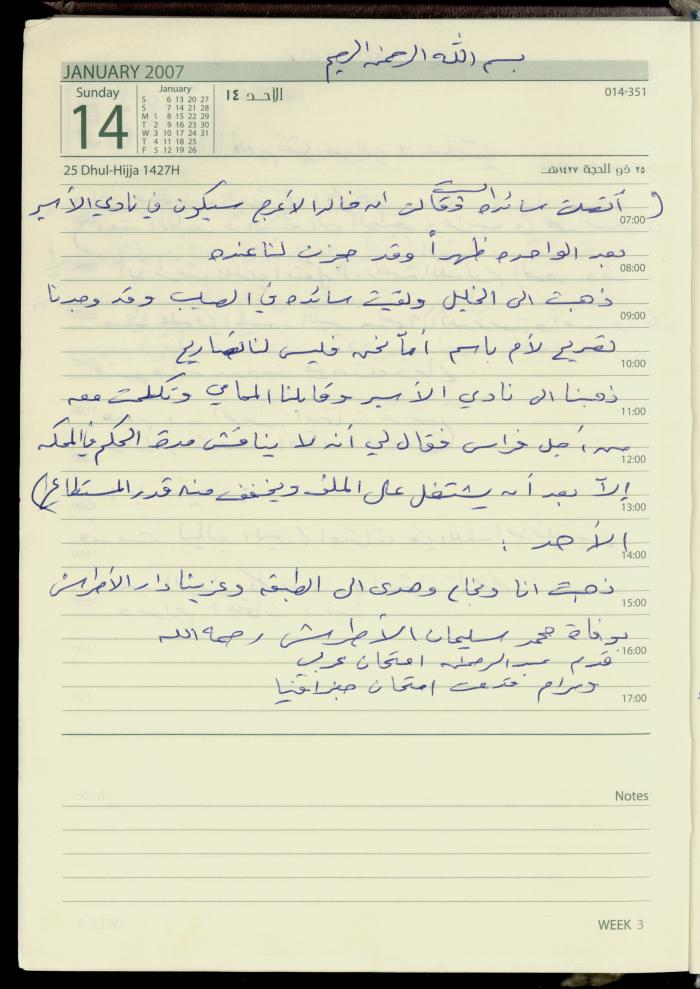 بسم الله الرحمن الرحيم
JANUARY 2007
Sunday
14
January
S 6 13 20 27
S 7 14 21 28
M 1 8 15 22 29
T 2 9 16 23 30
W 3 10 17 24 31
T 4 11 18 25
F 5 12 19 26
الأحد ١٤
014-351
25 Dhul-Hijja 1427H
٢٥ ذو الحجة ١٤٢٧هـ
( أتصلت سائده وقالت ان خالد الأعرج سيكون في نادي الأسير
07:00
بعد الواحده ظهراً وقد حجزت لنا عنده
08:00
ذهبت الى الخليل ولقيت سائده في الصليب وقد وجدنا
09:00
تصريح لأم باسم أمّا نحن فليس لنا تصاريح
10:00
ذهبنا الى نادي الأسير وقابلنا المحامي وتكلمت معه
11:00
من أجل فراس فقال لي أنه لا يناقش مدة الحكم في المحكمه
12:00
إلاّ بعد أن يشتغل على الملف ويخفف منه قدر المستطاع )
13:00
الأحد :
14:00
ذهبت انا ونجاح وهدى الى الطبقه وعزينا دار الأطرش
15:00
بوفاة محمد سليمان الأطرش رحمه الله
16:00
قدم عبد الرحمن امتحان عربي
ومرام قدمت امتحان جغرافيا
17:00
Notes
WEEK 3